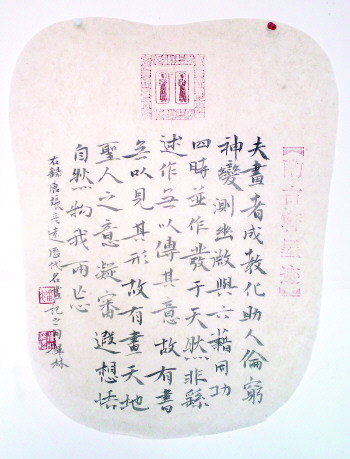 夫畫者成教化助人倫窮
神變測幽微與六籍同功
四時並作發于天然非繇
述作無以傳其意故有書
無以見其形故有畫天地
聖人之意凝審遐想悟
自然物我兩忘
右錄唐張彥遠歷代名畫記之句林